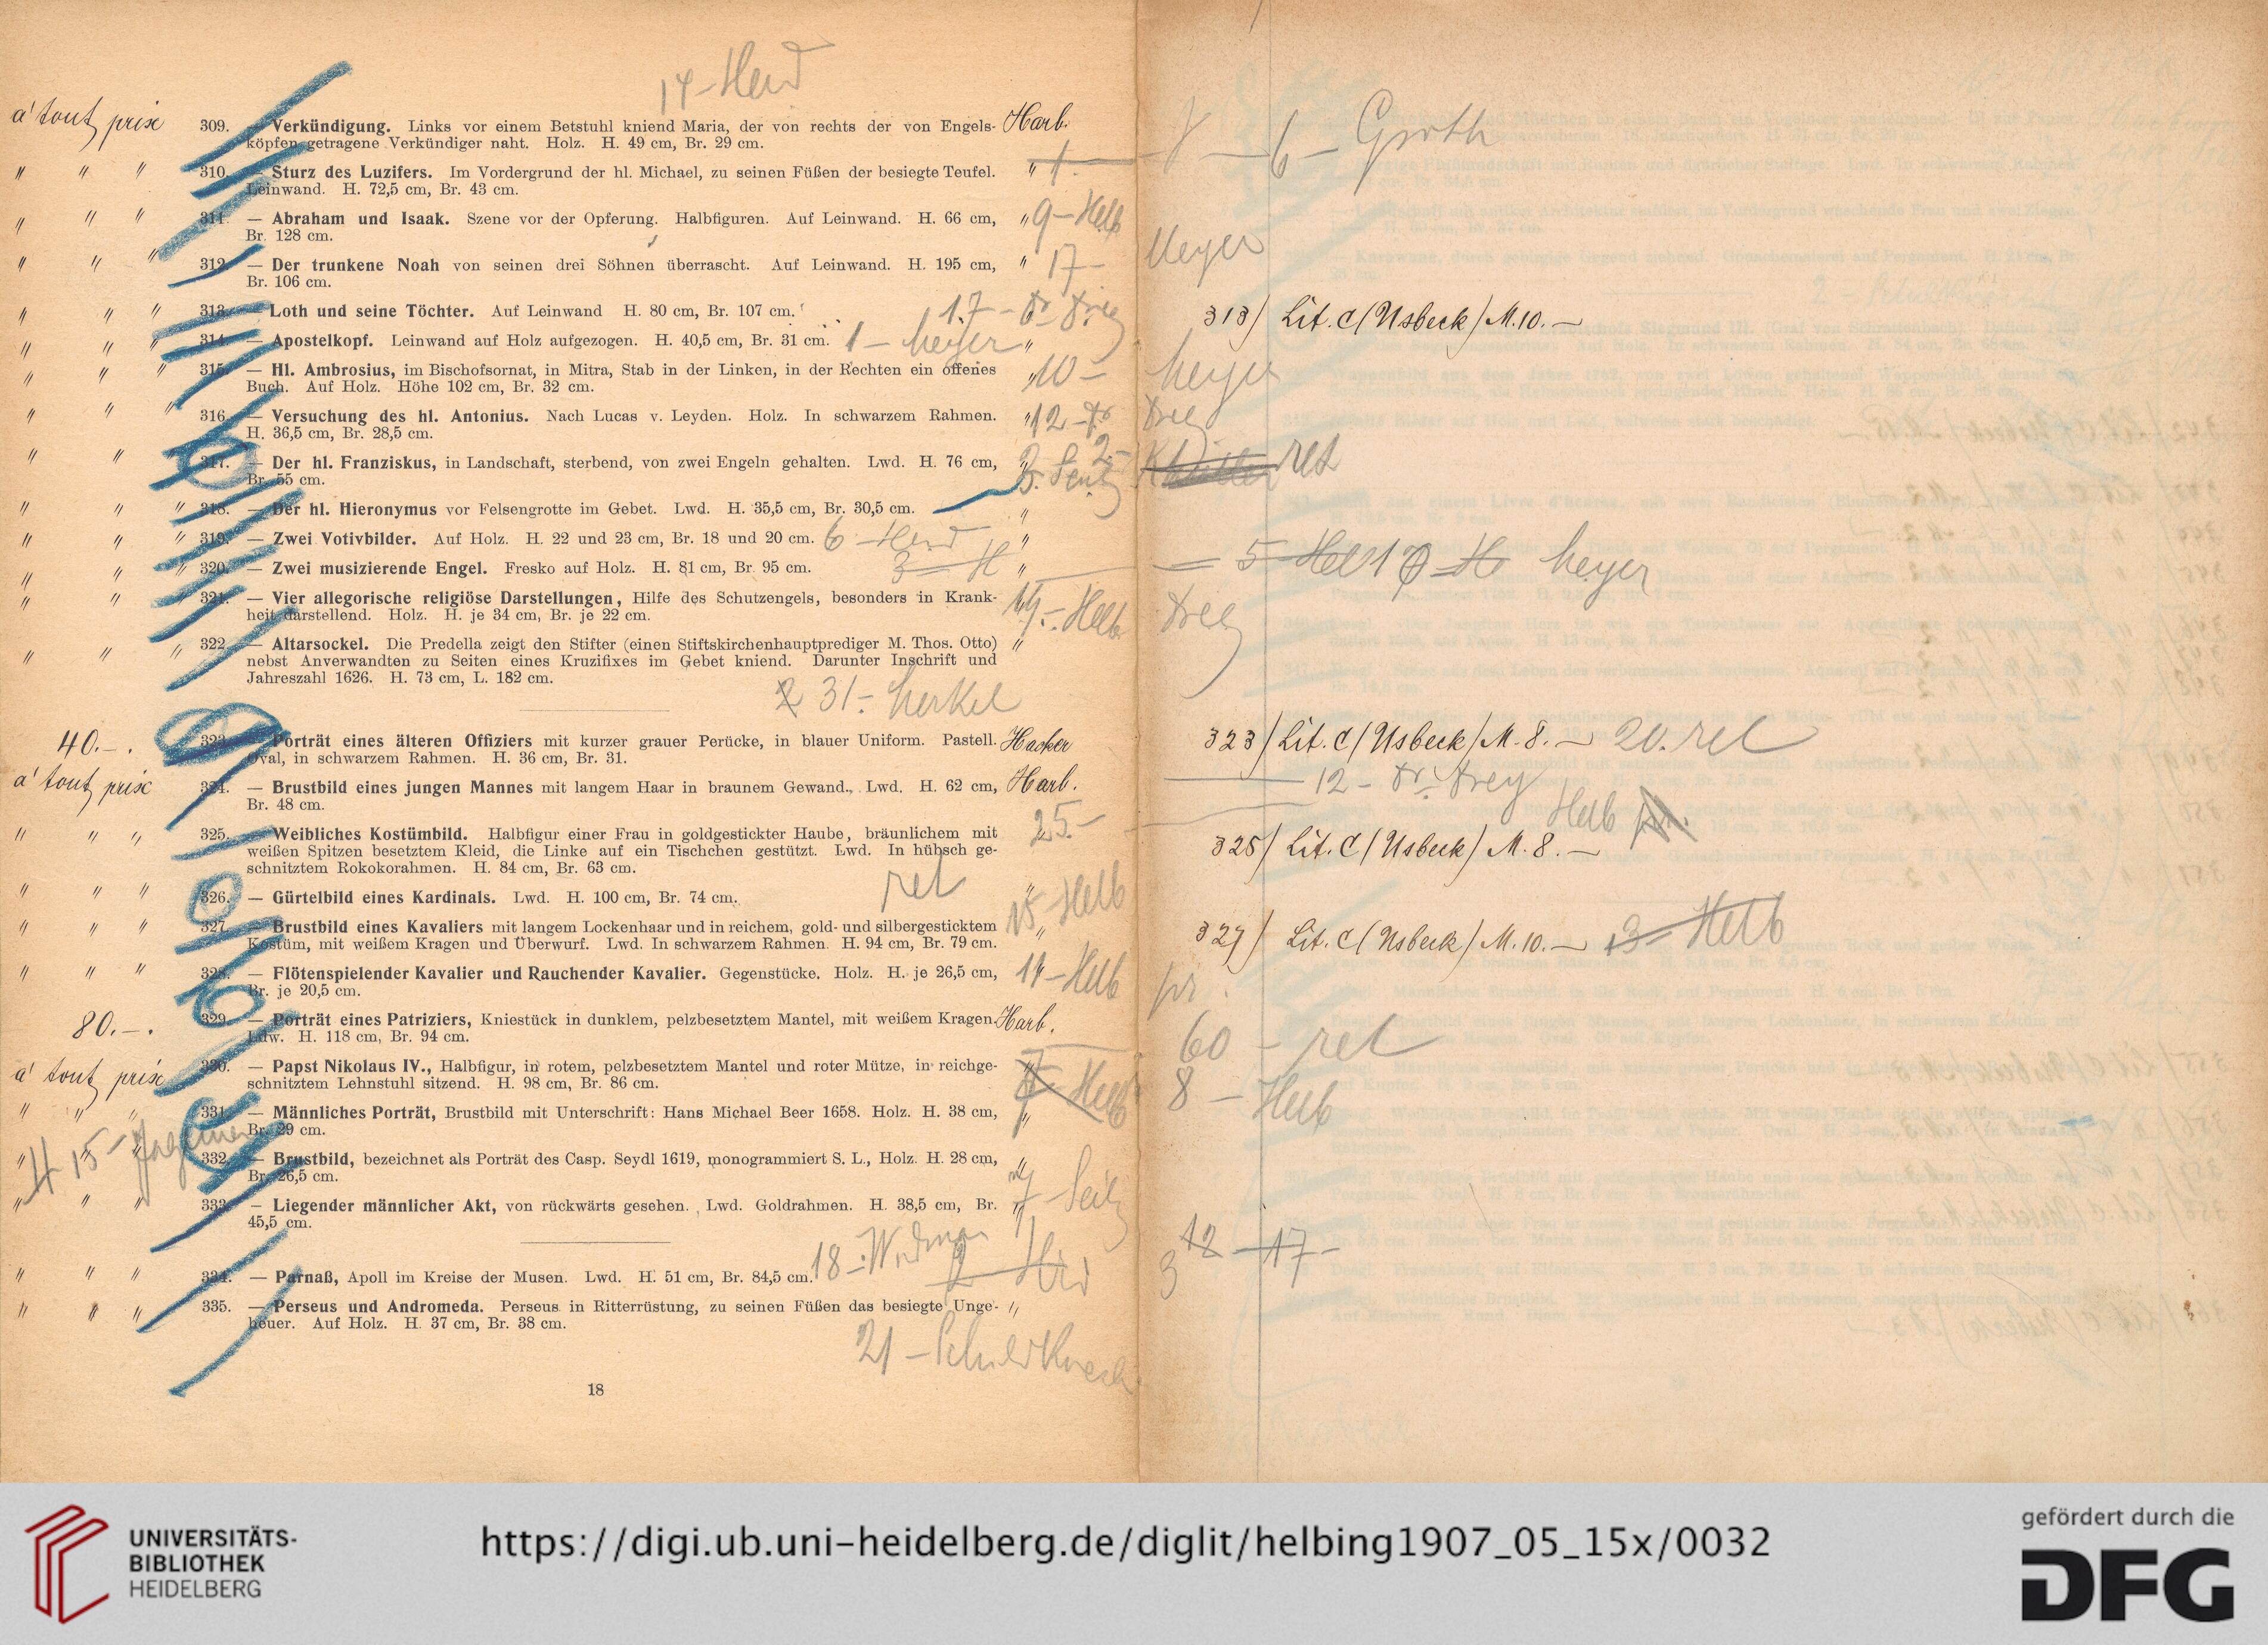 14 - Herd
a' tout prix 309. — Verkündigung. Links vor einem Betstuhl kniend Maria, der von rechts der von Engels- Harb.
köpfen getragene Verkündiger naht. Holz. H. 49 cm, Br. 29 cm.
6 - Groth
" " " 310. — Sturz des Luzifers. Im Vordergrund der hl. Michael, zu seinen Füßen der besiegte Teufel. "
Leinwand. H. 72,5 cm, Br. 43 cm.
" " " 311. — Abraham und Isaak. Szene vor der Opferung. Halbfiguren. Auf Leinwand. H. 66 cm, " 9 - Helb
Br. 128 cm.
" " " 312. — Der trunkene Noah von seinen drei Söhnen überrascht. Auf Leinwand. H. 195 cm, " 17 - Meyer
Br. 106 cm.
" " " 313. — Loth und seine Töchter. Auf Leinwand H. 80 cm, Br. 107 cm. 17 - Dr. Drey
313) Lit. C (Usbeck) M. 10. —
" " " 314. — Apostelkopf. Leinwand auf Holz aufgezogen. H. 40,5 cm, Br. 31 cm. 1 - Meyer "
" " " 315. — Hl. Ambrosius, im Bischofsornat, in Mitra, Stab in der Linken, in der Rechten ein offenes " 10 - Meyer
Buch. Auf Holz. Höhe 102 cm, Br. 32 cm.
" " " 316. — Versuchung des hl. Antonius. Nach Lucas v. Leyden. Holz. In schwarzem Rahmen. " 12 - Dr Drey
H. 36,5 cm, Br. 28,5 cm.
" " 317. — Der hl. Franziskus, in Landschaft, sterbend, von zwei Engeln gehalten. Lwd. H. 76 cm, " 2 - ret
Br. 55 cm.
" " " 318. — Der hl. Hieronymus vor Felsengrotte im Gebet. Lwd. H. 35,5 cm, Br. 30,5 cm. "
" " " 319. — Zwei Votivbilder. Auf Holz. H. 22 und 23 cm, Br. 18 und 20 cm. 6 - Herd "
" " " 320. — Zwei musizierende Engel. Fresko auf Holz. H. 81 cm, Br. 95 cm. 3 - H "
Meyer
" " 321. — Vier allegorische religiöse Darstellungen, Hilfe des Schutzengels, besonders in Krank- Helb Drey
heit darstellend. Holz. H. je 34 cm, Br. je 22 cm.
" " " 322. — Altarsockel. Die Predella zeigt den Stifter (einen Stiftskirchenhauptprediger M. Thos. Otto) "
nebst Anverwandten zu Seiten eines Kruzifixes im Gebet kniend. Darunter Inschrift und
Jahreszahl 1626. H. 73 cm, L. 182 cm.
31.- Merkel
40.—. 323. Porträt eines älteren Offiziers mit kurzer grauer Perücke, in blauer Uniform. Pastell. Hacker
Oval, in schwarzem Rahmen. H. 36 cm, Br. 31.
323) Lit. C (Usbeck) M. 8. — 20. ret
a' tout prix 324. — Brustbild eines jungen Mannes mit langem Haar in braunem Gewand. Lwd. H. 62 cm, Harb.
Br. 48 cm.
12 - Dr. Drey
" " " 325. — Weibliches Kostümbild. Halbfigur einer Frau in goldgestickter Haube, bräunlichem mit 25.- Helb
weißen Spitzen besetztem Kleid, die Linke auf ein Tischchen gestützt. Lwd. In hübsch ge-
schnitztem Rokokorahmen. H. 84 cm, Br. 63 cm.
325) Lit. C (Usbeck) M. 8. —
" " " 326. — Gürtelbild eines Kardinals. Lwd. H. 100 cm, Br. 74 cm. ret "
" " " 327. — Brustbild eines Kavaliers mit langem Lockenhaar und in reichem, gold- und silbergesticktem 15 - Helb "
Kostüm, mit weißem Kragen und Überwurf. Lwd. In schwarzem Rahmen. H. 94 cm, Br. 79 cm.
327) Lit. C (Usbeck) M. 10. — 13 - Helb
" " " 328. — Flötenspielender Kavalier und Rauchender Kavalier. Gegenstücke. Holz. H. je 26,5 cm, Helb
Br. je 20,5 cm.
80.—. 329. — Porträt eines Patriziers, Kniestück in dunklem, pelzbesetztem Mantel, mit weißem Kragen. Harb.
Ldw. H. 118 cm, Br. 94 cm.
60 - ret
a' tout prix 330. — Papst Nikolaus IV., Halbfigur, in rotem, pelzbesetztem Mantel und roter Mütze, in reichge- Helb
schnitztem Lehnstuhl sitzend. H. 98 cm, Br. 86 cm.
8 - Helb
" " " 331. — Männliches Porträt, Brustbild mit Unterschrift: Hans Michael Beer 1658. Holz. H. 38 cm, "
Br. 29 cm.
15 -
" " " 332. — Brustbild, bezeichnet als Porträt des Casp. Seydl 1619, monogrammiert S. L., Holz. H. 28 cm, "
Br. 26,5 cm.
" " " 333. — Liegender männlicher Akt, von rückwärts gesehen. Lwd. Goldrahmen. H. 38,5 cm, Br. " 7 - Seitz
45,5 cm.
12 - 17 -
" " " 334. — Parnaß, Apoll im Kreise der Musen. Lwd. H. 51 cm, Br. 84,5 cm. 18 -
" " " 335. — Perseus und Andromeda. Perseus in Ritterrüstung, zu seinen Füßen das besiegte Unge- "
heuer. Auf Holz. H. 37 cm, Br. 38 cm.
21 - Schuldknech
18
UNIVERSITÄTS-
BIBLIOTHEK
HEIDELBERG
https://digi.ub.uni-heidelberg.de/diglit/helbing1907_05_15x/0032
gefördert durch die
DFG